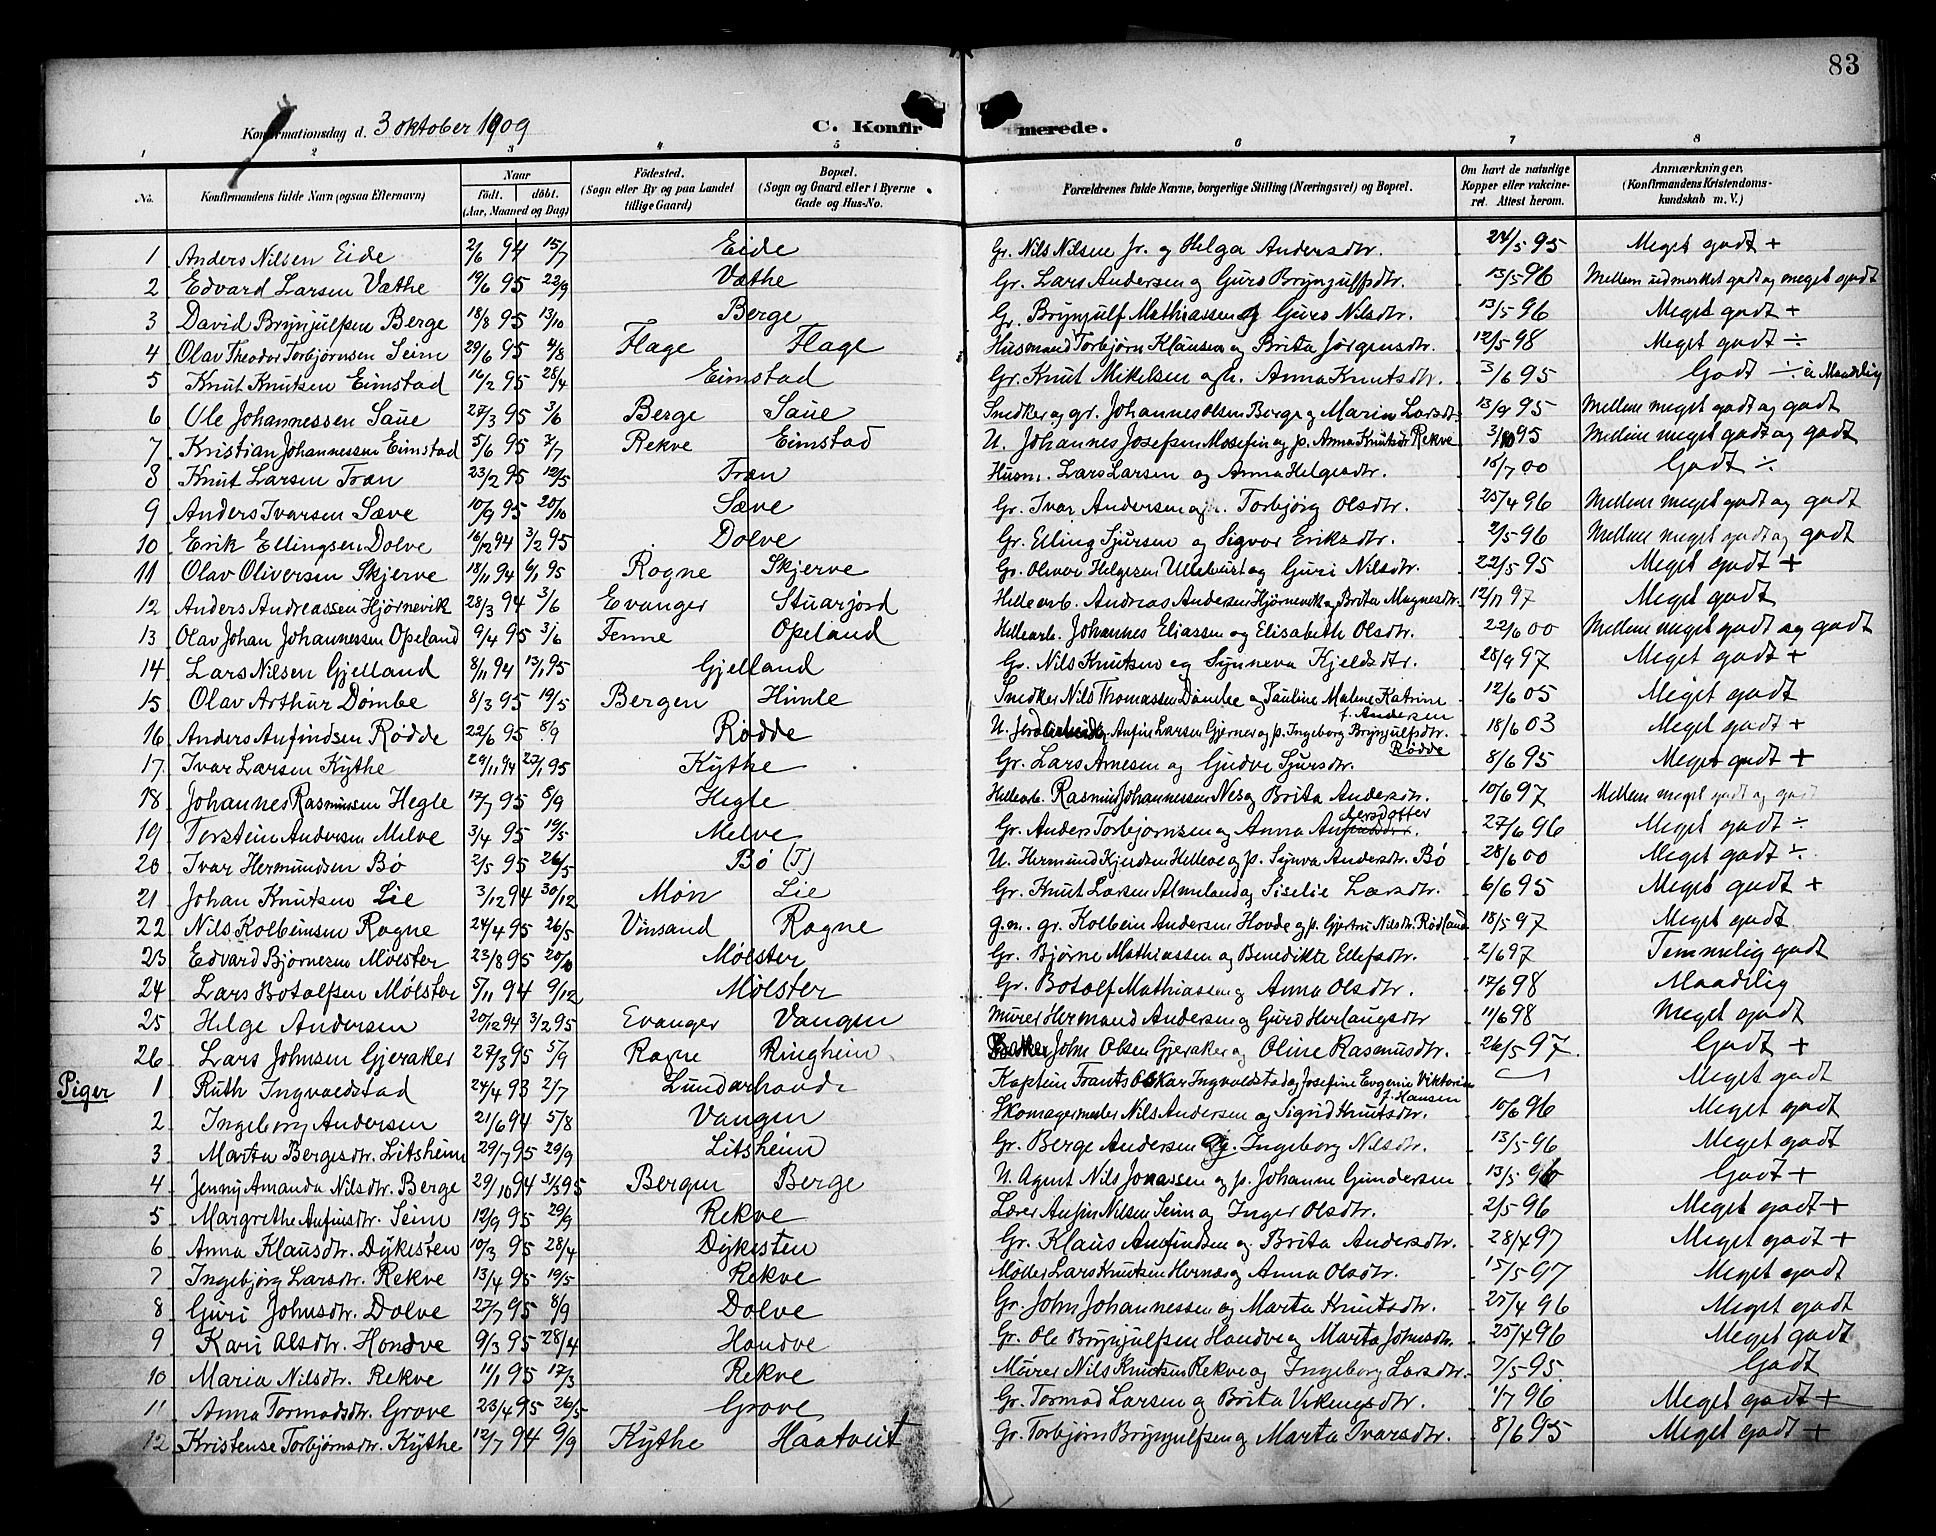 83
Konfirmationsdag d. 3 oktober 1909 C. Konfirmerede.
1 2 3 4 5 6 7 8
No. Konfirmandens fulde Navn (ogsaa Efternavn) Naar født. døbt. (Aar, Maaned og Dag) Födested. (Sogn eller By og paa Landet tillige Gaard) Bopæl. (Sogn og Gaard eller i Byerne Gade og Hus-No. Forældrenes fulde Navne, borgerlige Stilling (Næringsvei) og Bopæl. Om havt de naturlige Kopper eller vakcineret. Attest herom. Anmærkninger. (Konfirmandens Kristendomskundskab m. V.)
1 Anders Nilsen Eide 2/6 94 15/7 Eide Gr. Nils Nilsen Jr. og Helga Andersdtr. 22/5 95 Meget godt +
2 Edvard Larsen Væthe 19/6 95 22/9 Væthe Gr. Lars Andersen og Guro Brynjulfsdtr. 13/5 96 Mellem udmerket godt og meget godt
3 David Brynjulfsen Berge 18/8 95 13/10 Berge Gr. Brynjulf Mathiassen og Guro Nilsdtr. 13/5 96 Meget godt +
4 Olav Theodor Torbjørnsen Seim 29/6 95 4/8 Flage Flage Husmand Torbjørn Klausen og Brita Jørgensdtr. 12/5 98 Meget godt ÷
5 Knut Knutsen Eimstad 16/2 95 28/4 Eimstad Gr. Knut Mikelsen og h. Anna Knutsdtr. 3/6 95 Godt ÷ à Maadelig
6 Ole Johannessen Saue 27/3 95 3/6 Berge Saue Snedker og gr. Johannes Olsen Berge og Marin Larsdtr. 13/9 95 Mellem meget godt og godt
7 Kristian Johannessen Eimstad 5/6 95 7/7 Rekve Eimstad U. Johannes Josefsen Mosefin og p. Anna Knutsdtr Rekve 3/10 95 Mellem meget godt og godt
8 Knut Larsen Træn 23/2 95 12/5 Træn Husm. Lars Larsen og Anna Helgesdtr. 18/7 00 Godt ÷
9 Anders Ivarsen Sæve 10/9 95 20/10 Sæve Gr. Ivar Andersen og h. Torbjørg Olsdtr. 25/4 96 Mellem meget godt og godt
10 Erik Ellingsen Dolve 16/12 94 3/2 95 Dolve Gr. Elling Sjursen og Sigvor Eriksdtr. 2/5 96 Mellem meget godt og godt
11 Olav Oliversen Skjerve 18/11 94 6/1 95 Rogne Skjerve Gr. Oliver Helgesen og Guri Nilsdtr. 22/5 95 Meget godt +
12 Anders Andreassen Hjørnevik 28/3 94 3/6 Evanger Stuarjord Hellearb. Andreas Andersen Hjørnevik og Brita Magnesdtr. 12/11 97 Meget godt
13 Olav Johan Johannessen Opeland 9/4 95 3/6 Tenne Opeland Hellearb. Johannes Eliassen og Elisabeth Olsdtr. 22/6 00 Mellem meget godt og godt
14 Lars Nilsen Gjelland 8/11 94 13/1 95 Gjelland Gr. Nils Knutsen og Synneva Kjeldsdtr. 28/9 97 Meget godt +
15 Olav Arthur Dømbe 8/3 95 19/5 Bergen Himle Snedker Nils Thomassen Dømbe og Pauline Malene Katrine f. Andersen 12/6 05 Meget godt
16 Anders Anfindsen Rødde 22/6 95 8/9 Rødde U. Jordarbeider Anfin Larsen Gjerner og p. Ingeborg Brynjulfsdtr. Rødde 18/6 03 Meget godt +
17 Ivar Larsen Kythe 29/11 94 27/1 95 Kythe Gr. Lars Arnesen og Gudve Sjursdtr. 8/6 95 Meget godt +
18 Johannes Rasmussen Hegle 17/7 95 8/9 Hegle Hellearb. Rasmus Johannessen Nes og Brita Andersdtr. 10/6 97 Mellem meget godt og godt
19 Torstein Andersen Melve 3/4 95 19/5 Melve Gr. Anders Torbjørnsen og Anna Andersdotter 27/6 96 Meget godt ÷
20 Ivar Hermundsen Bø 2/5 95 26/5 Bø (T) U. Hermund Kjerdsen Helleve og p. Synva Andersdtr. Bø 28/6 00 Meget godt ÷
21 Johan Knutsen Lie 3/12 94 30/12 Møn Lie Gr. Knut Larsen Almeland og Siselie Larsdtr. 6/6 95 Meget godt +
22 Nils Kolbeinsen Rogne 24/4 95 26/5 Vinsand Rogne g.m. gr. Kolbein Andersen Hovde og p. Gjertru Nilsdtr. Rødland 18/5 97 Meget godt
23 Edvard Bjørnesen Mølster 23/8 95 20/10 Mølster Gr. Bjørne Mathiassen og Benedikte Ellefsdtr. 2/6 97 Temmelig godt
24 Lars Botolfsen Mølster 5/11 94 9/12 Mølster Gr. Botolf Mathiassen og Anna Olsdtr. 17/6 98 Maadelig
25 Helge Andersen 20/12 94 3/2 95 Evanger Vangen Murer Hermand Andersen og Guro Herlaugsdtr 11/6 98 Meget godt
26 Lars Johnsen Gjeraker 27/3 95 5/9 Rogne Ringheim Bakker John Olsen Gjeraker og Oline Rasmusdtr. 26/5 97 Godt +
Piger 1 Ruth Ingvaldstad 24/4 93 2/7 Lundarhovde Kaptein Frants Oskar Ingvaldstad og Josefine Evgenie Viktoria f. Hansen Meget godt
2 Ingeborg Andersen 21/6 94 5/8 Vangen Skomagermester Nils Andersen og Sigrid Knutsdtr. 10/6 96 Meget godt
3 Marta Bergesdtr. Litsheim 29/7 95 29/9 Litsheim Gr. Berge Andersen og Ingeborg Nilsdtr. 13/5 96 Meget godt
4 Jenny Amanda Nilsdtr. Berge 29/10 94 31/3 95 Bergen Berge U. Agent Nils Jonassen og p. Johanne Gundersen 13/5 96 Godt +
5 Margrethe Anfinsdtr. Seim 12/9 95 29/9 Rekve Lærer Anfin Nilsen Seim og Inger Olsdtr. 2/5 96 Meget godt +
6 Anna Klausdtr. Dykesten 10/3 95 28/4 Dykesten Gr. Klaus Anfindsen og Brita Andersdtr. 28/4 97 Meget godt +
7 Ingebjørg Larsdtr. Rekve 13/4 95 19/5 Rekve Møller Lars Knutsen Hernæs og Anna Olsdtr. 15/5 97 Meget godt
8 Guri Johnsdtr. Dolve 27/7 95 8/9 Dolve Gr. John Johannessen og Marta Knutsdtr. 25/4 96 Meget godt
9 Kari Olsdtr. Hondve 9/3 95 28/4 Hondve Gr. Ole Brynjulfsen Hondve og Marta Johnsdtr. 25/4 96 Meget godt
10 Maria Nilsdtr. Rekve 11/1 95 17/3 Rekve Murer Nils Knutsen Rekve og Ingeborg Larsdtr. 7/5 95 Godt
11 Anna Tormodsdtr. Grove 23/4 95 26/5 Grove Gr. Tormod Larsen og Brita Vikingsdtr. 1/7 96 Meget godt +
12 Kristense Torbjørnsdtr. Kythe 12/7 94 9/9 Kythe Haatveit Gr. Torbjørn Brynjulfsen og Marta Ivarsdtr. 8/6 95 Meget godt +